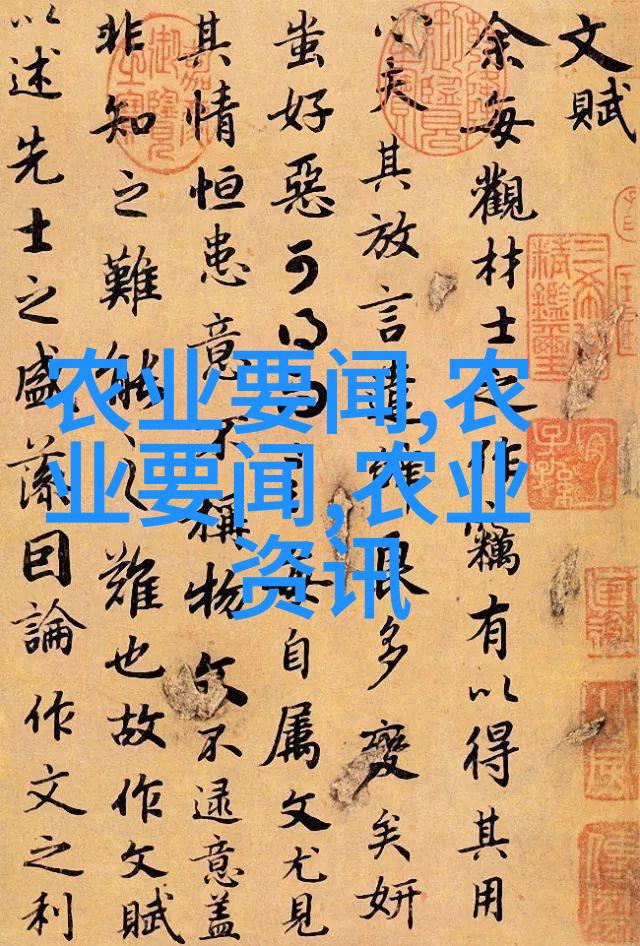 文賦
余每觀材士之作竊有以得其用
心夫其放言遣辭良多變矣妍
蚩好惡可得而言每自属文尤見
其情恒患意不稱物文不逮意盖
非知之難能之難也故作文賦
以述先士之盛藻因論作文之利
农业要闻,农
业要闻,农业
资讯